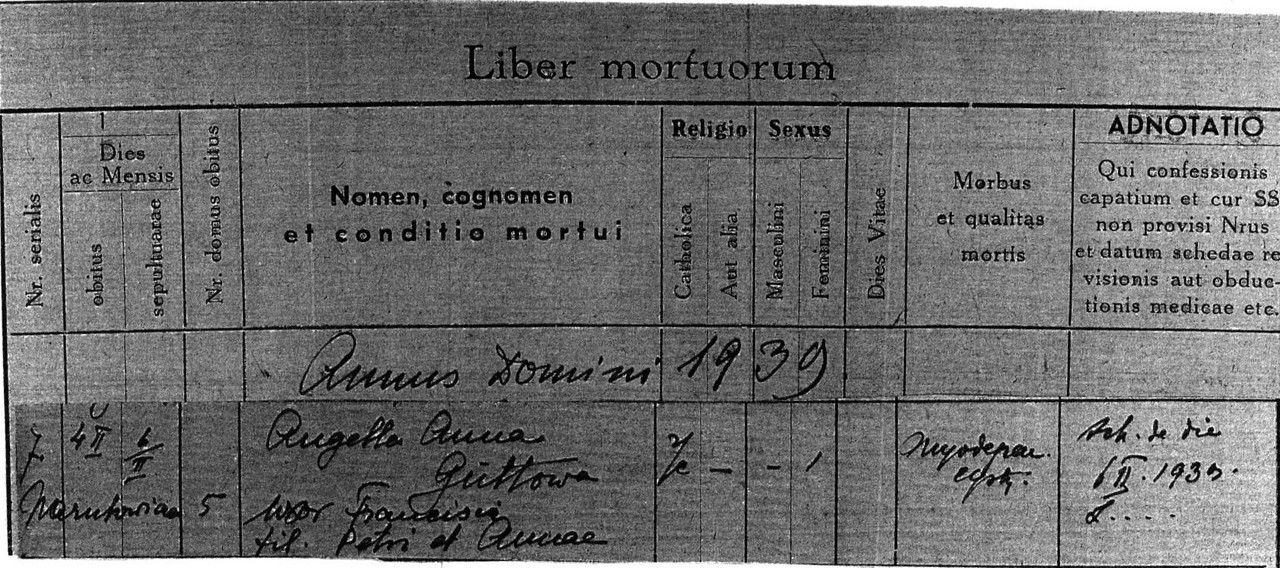 Liber mortuorum
Nr. serialis
Dies
ac Mensis
obitus
sepulturae
Nr. domus obitus
Nomen, cognomen
et conditio mortui
Religio
Catholica
Aut alia
Sexus
Masculini
Feminini
Dies Vitae
Morbus
et qualitas
mortis
ADNOTATIO
Qui confessionis
capatium et cur SS
non provisi Nrus
et datum schedae re
visionis aut obduc-
tionis medicae etc.
Annus Domini 1939
7. 4 II 6/II Angella Anna
Guttowa
5 uxor Francisci
fil. Petri et Annae
- - 1
sch. de die
6 II. 1939.